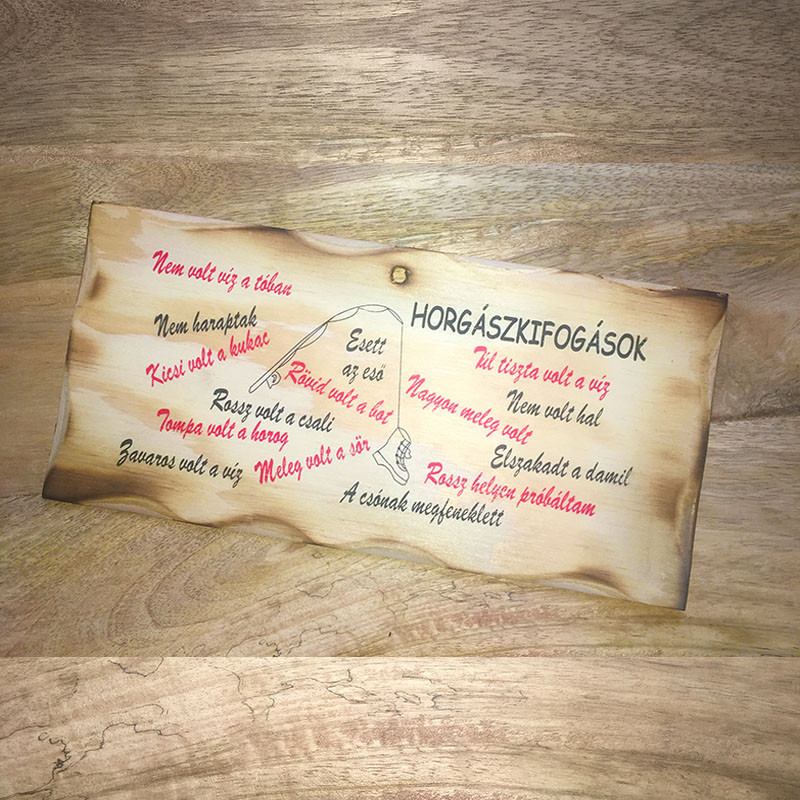 HORGÁSZKIFOGÁSOK
Nem volt víz a tóban
Nem haraptak
Kicsi volt a kukac
Esett
az eső
Rövid volt a bot
Rossz volt a csali
Tompa volt a horog
Zavaros volt a víz
Meleg volt a sör
Túl tiszta volt a víz
Nem volt hal
Nagyon meleg volt
Elszakadt a damil
Rossz helyen próbáltam
A csónak megfeneklett